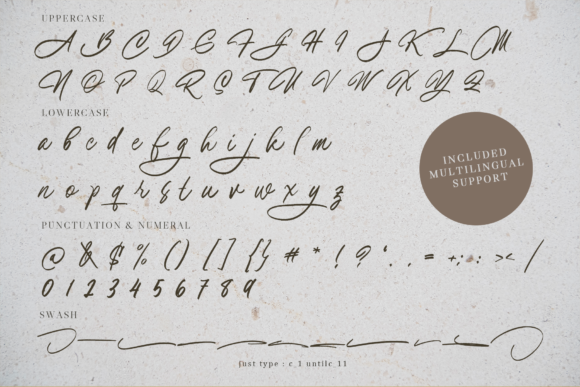 UPPERCASE
A B C D E F G H I J K L M
N O P Q R S T U V W X Y Z
LOWERCASE
a b c d e f g h i j k l m
n o p q r s t u v w x y z
INCLUDED
MULTILINGUAL
SUPPORT
PUNCTUATION & NUMERAL
@ & $ % ( ) [ ] { } # * ! ? ' . , = + ; : > < /
0 1 2 3 4 5 6 7 8 9
SWASH
just type : c_1 untilc_11